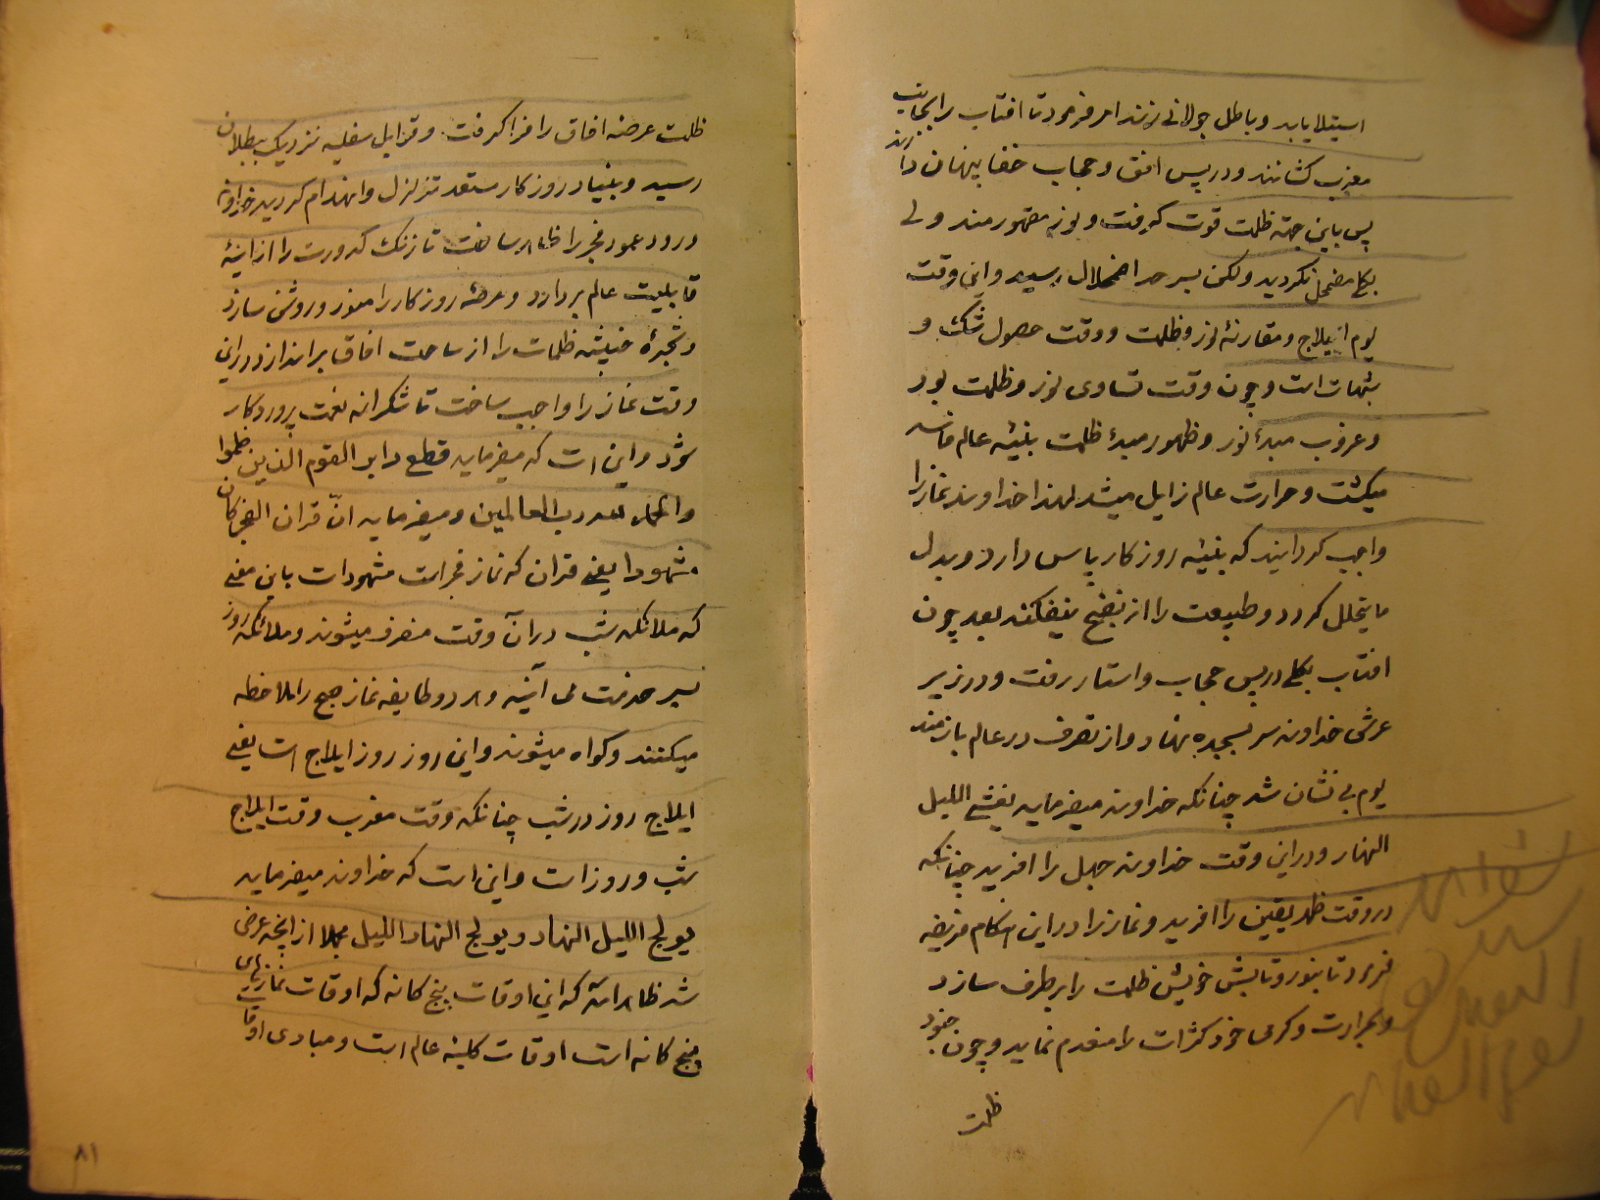 استیلا یابد و باطل جولانی زند امر فرمود تا افتاب را بجانب
مغرب کشانند و در پس افق و حجاب خفا پنهان دارند
پس باین جهة ظلمت قوت گرفت و نور مقهور شد ولی
بکلی مضمحل نکردید ولکن بسر حد اضمحلال رسید و این وقت
یوم ایلاج و مقارنهٔ نور و ظلمت و وقت حصول شک و
شبهات است و چون وقت تساوی نور و ظلمت بود
و غروب مبدأ نور و ظهور مبدأ ظلمت بنیهٔ عالم فاسد
میکشت و حرارت عالم زایل میشد لهذا خداوند نماز را
واجب کردانید که بنیهٔ روزکار پاس دارد و بدل
ما یتحلل کردد و طبیعت را از نضج نیفکند بعد چون
افتاب بکلی در پس حجاب و استار رفت و در زیر
عرش خداوند سر بسجده نهاد و از تصرف در عالم باز ماند
یوم بی نشان شد چنانکه خداوند میفرماید یغشی اللیل
النهار و در این وقت خداوند جهل را افرید چنانکه
در وقت ظهر یقین را افرید و نماز را در این هنکام فریضه
فرمود تا بنور و تابش خویش ظلمت را برطرف سازد
و بحرارت و کرمی خود کثرات را منعدم نماید و چون جنود
ظلمت
ظلمت عرصه افاق را فرا کرفت و قوابل سفلیه نزدیک ببطلان
رسید و بنیاد روزکار مستعد تزلزل و انهدام کردید خداوند
درود عمود فجر را ظاهر ساخت تا زنک کدورت را از اینهٔ
قابلیت عالم بردارد و عرصهٔ روزکار را منور و روشن سازد
و شجرهٔ خبیثه ظلمات را از ساحت افاق براندازد در این
وقت نماز را واجب ساخت تا شکرانه نعمت پروردکار
شود و این است که میفرماید فقطع دابر القوم الذین ظلموا
والحمد لله رب العالمین و میفرماید انّ قران الفجر کان
مشهودا یعنی قران که نماز فجر است مشهود است باین معنی
که ملائکه شب در آن وقت منصرف میشوند و ملائکه روز
بسر خدمت می آیند و هر دو طایفه نماز صبح را ملاحظه
میکنند و کواه میشوند و این روز روز ایلاج است یعنی
ایلاج روز در شب چنانکه وقت مغرب وقت ایلاج
شب و روز است و این است که خداوند میفرماید
یولج اللیل النهار و یولج النهار اللیل مجملا از انچه عرض
شد ظاهر شد که این اوقات پنج کانه که اوقات نمازهای
پنج کانه است اوقات کلیهٔ عالم است و مبادی اوقات
۸۱